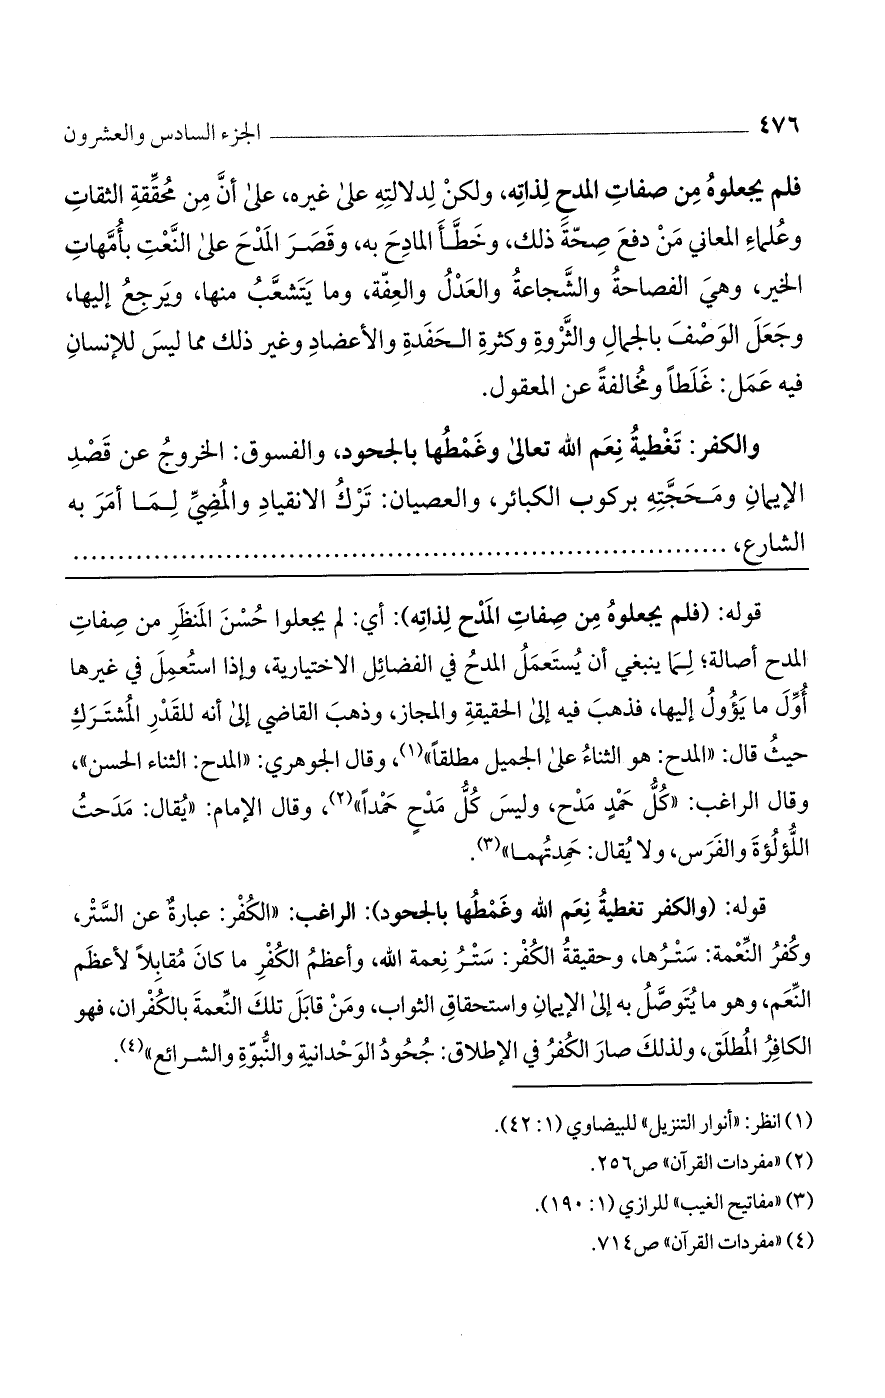 ٤٧٦ ــــــــــــــــــــ الجزء السادس والعشرون
فلم يجعلوهُ مِن صفاتِ المدحِ لِذاتِه، ولكنْ لِدلالتِهِ علىٰ غيره، علىٰ أنَّ مِن مُحقِّقةِ الثقاتِ
وعُلماءِ المعاني مَنْ دفعَ صِحّةَ ذلك، وخَطَّأَ المادِحَ به، وقَصَرَ المَدْحَ علىٰ النَّعْتِ بأُمَّهاتِ
الخير، وهيَ الفصاحةُ والشَّجاعةُ والعَدْلُ والعِفّة، وما يَتَشعَّبُ منها، ويَرجِعُ إليها،
وجَعَلَ الوَصْفَ بالجمالِ والثَّرْوةِ وكثرةِ الحَفَدةِ والأعضادِ وغير ذلك مما ليسَ للإنسانِ
فيه عَمَل: غَلَطاً ومُخالفةً عن المعقول.
والكفر: تَغْطيةُ نِعَم الله تعالىٰ وغَمْطُها بالجحود، والفسوق: الخروجُ عن قَصْدِ
الإيمانِ ومَحَجَّتِهِ بركوب الكبائر، والعصيان: تَرْكُ الانقيادِ والمُضِيِّ لِمَا أمَرَ به
الشارع، ......................................................................
قوله: (فلم يجعلوهُ مِن صِفاتِ المَدْح لِذاتِه): أي: لم يجعلوا حُسْنَ المَنظَرِ من صِفاتِ
المدح أصالة؛ لِمَا ينبغي أن يُستَعمَلُ المدحُ في الفضائل الاختيارية، وإذا استُعمِلَ في غيرها
أُوِّلَ ما يَؤُولُ إليها، فذهبَ فيه إلىٰ الحقيقةِ والمجاز، وذهبَ القاضي إلىٰ أنه للقَدْرِ المُشتَرَكِ
حيثُ قال: «المدح: هو الثناءُ علىٰ الجميل مطلقاً»(١)، وقال الجوهري: «المدح: الثناء الحسن»،
وقال الراغب: «كُلُّ حَمْدٍ مَدْح، وليسَ كُلُّ مَدْحٍ حَمْداً»(٢)، وقال الإمام: «يُقال: مَدَحتُ
اللُّؤلُؤةَ والفَرَس، ولا يُقال: حَمِدتُهما»(٣).
قوله: (والكفر تغطيةُ نِعَم الله وغَمْطُها بالجحود): الراغب: «الكُفْر: عبارةٌ عن السَّتْر،
وكُفْرُ النِّعْمة: سَتْرُها، وحقيقةُ الكُفْر: سَتْرُ نِعمة الله، وأعظمُ الكُفْرِ ما كانَ مُقابِلاً لأعظَم
النِّعَم، وهو ما يُتَوصَّلُ به إلىٰ الإيمانِ واستحقاقِ الثواب، ومَنْ قابَلَ تلكَ النِّعمةَ بالكُفْران، فهو
الكافِرُ المُطلَق، ولذلكَ صارَ الكُفرُ في الإطلاق: جُحُودُ الوَحْدانيةِ والنُّبوّةِ والشرائع»(٤).
(١) انظر: «أنوار التنزيل» للبيضاوي (١: ٤٢).
(٢) «مفردات القرآن» ص٢٥٦.
(٣) «مفاتيح الغيب» للرازي (١: ١٩٠).
(٤) «مفردات القرآن» ص٧١٤.